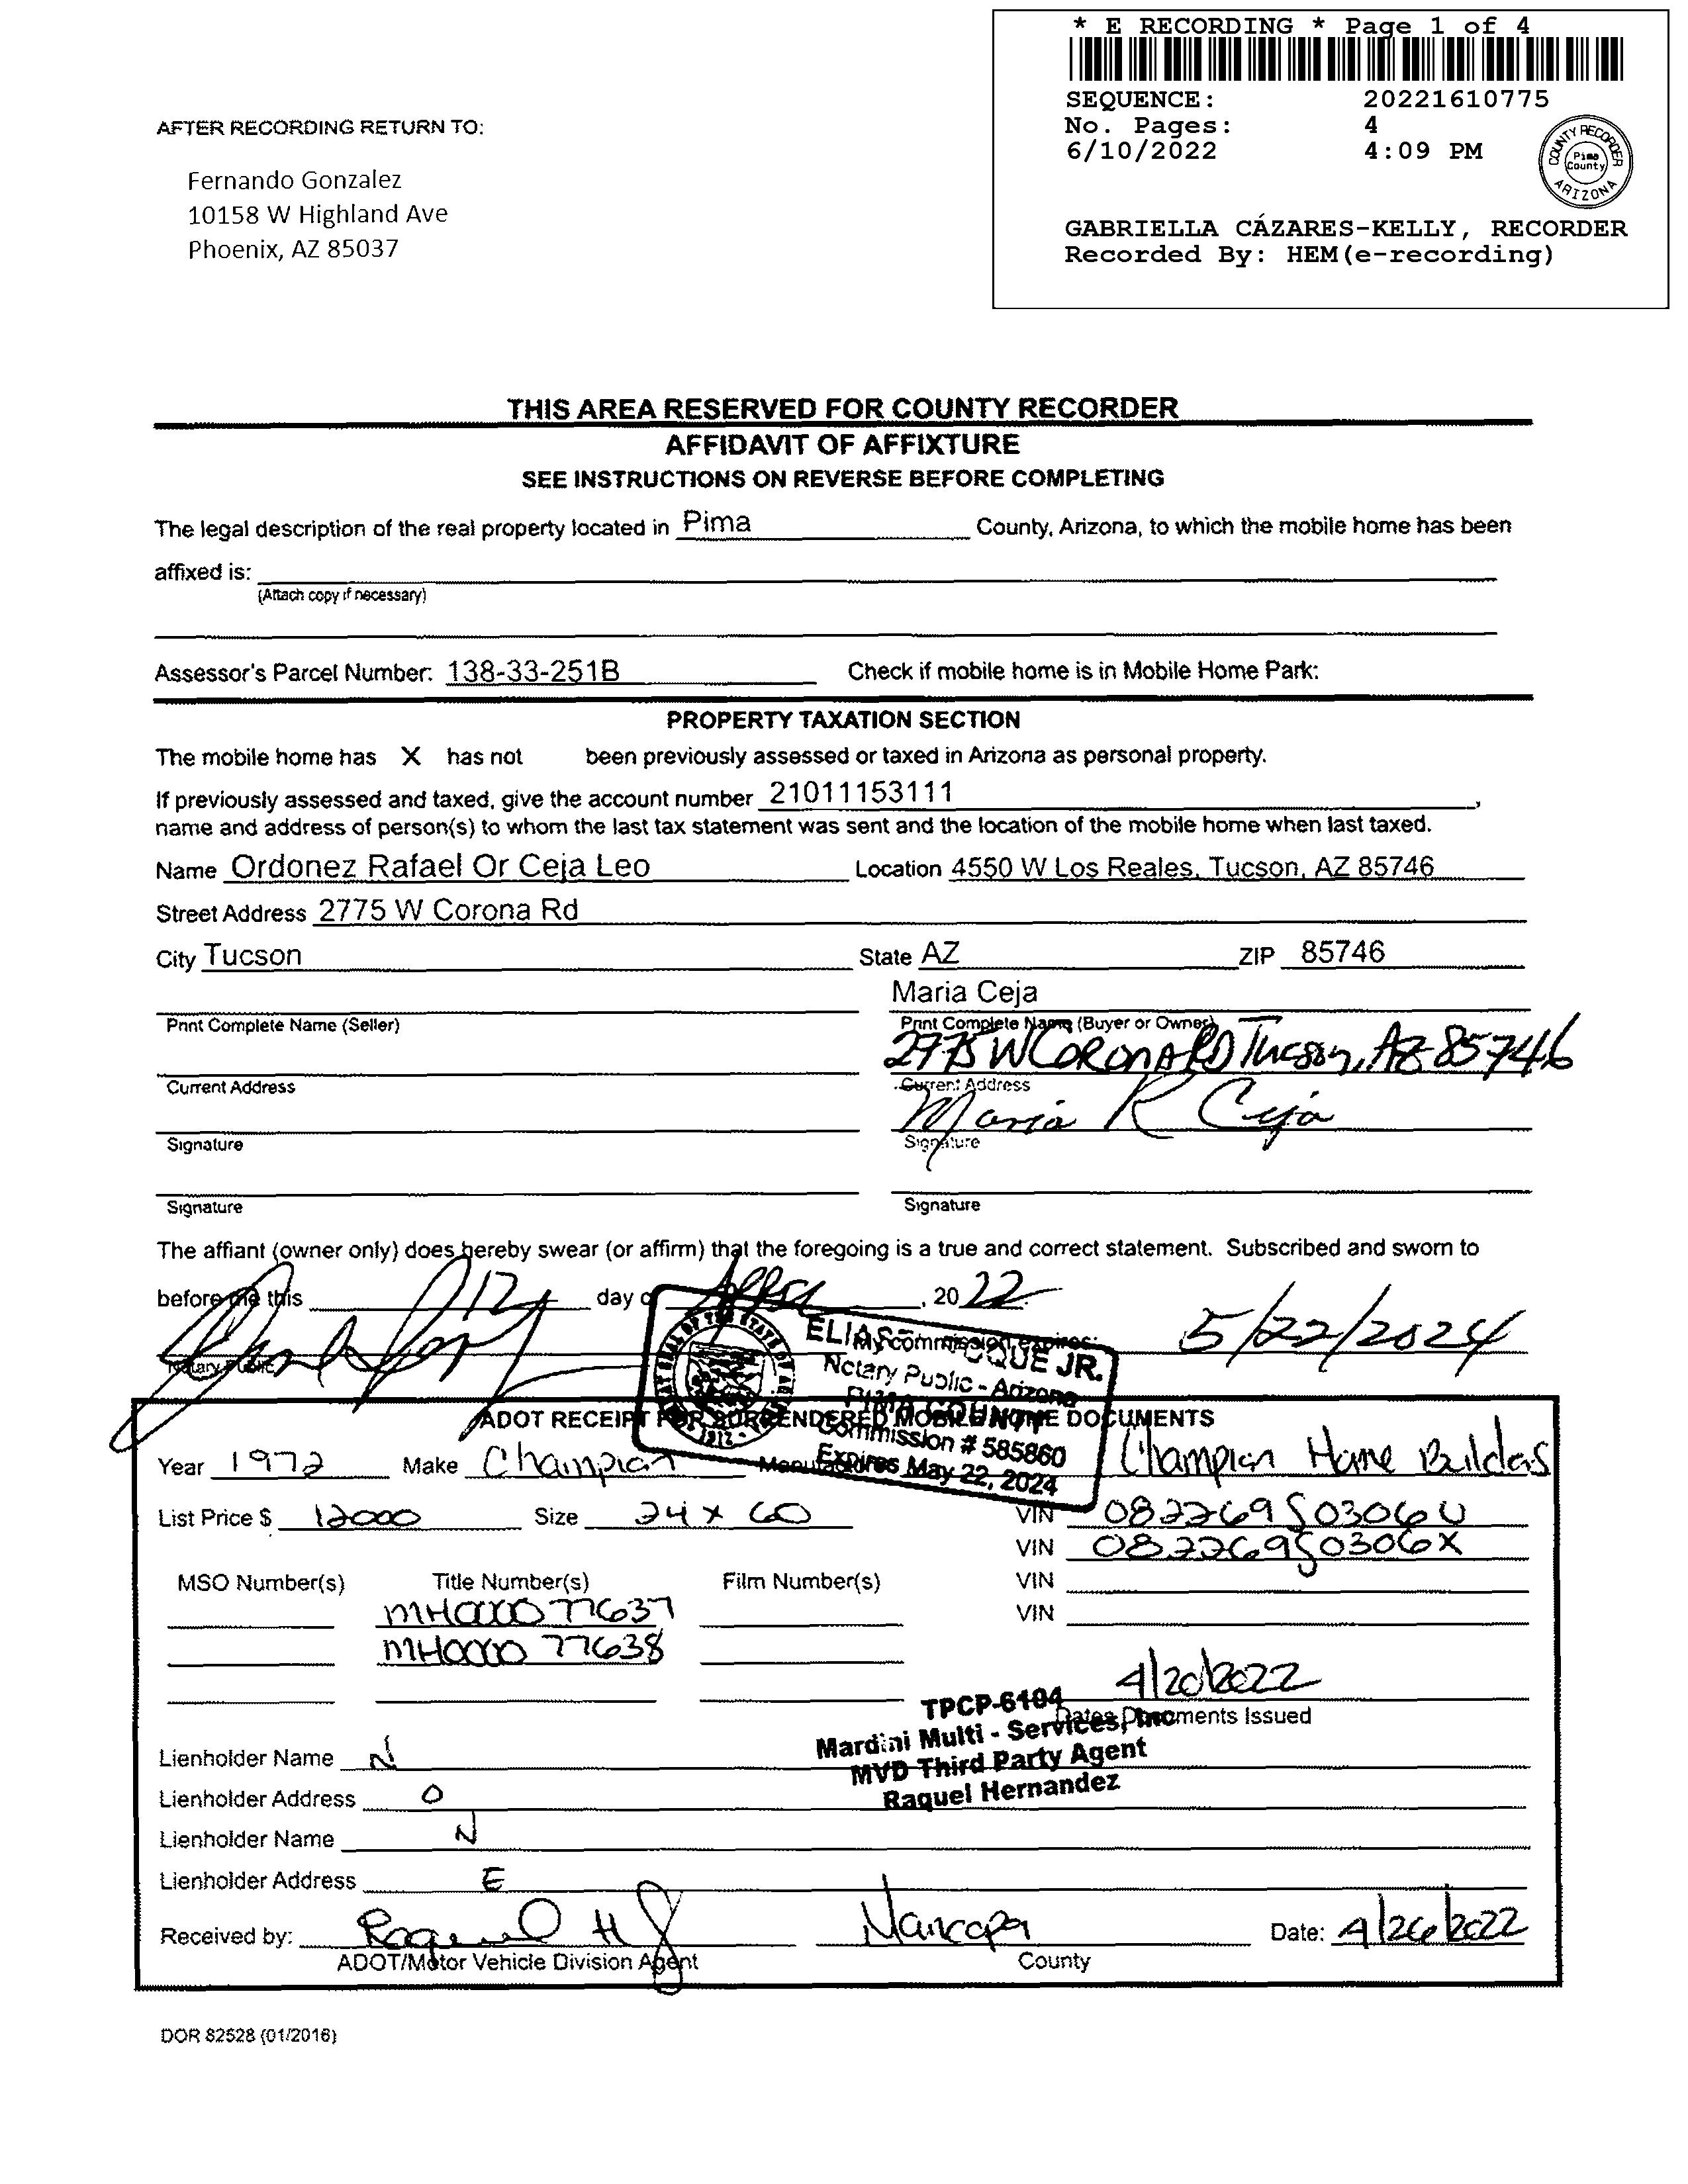 * E RECORDING * Page 1 of 4
SEQUENCE: 20221610775
No. Pages: 4
6/10/2022 4:09 PM
COUNTY RECORDER
Pima
County
ARIZONA
GABRIELLA CÁZARES-KELLY, RECORDER
Recorded By: HEM(e-recording)
AFTER RECORDING RETURN TO:
Fernando Gonzalez
10158 W Highland Ave
Phoenix, AZ 85037
THIS AREA RESERVED FOR COUNTY RECORDER
AFFIDAVIT OF AFFIXTURE
SEE INSTRUCTIONS ON REVERSE BEFORE COMPLETING
The legal description of the real property located in Pima County, Arizona, to which the mobile home has been
affixed is:
(Attach copy if necessary)
Assessor's Parcel Number: 138-33-251B Check if mobile home is in Mobile Home Park:
PROPERTY TAXATION SECTION
The mobile home has X has not been previously assessed or taxed in Arizona as personal property.
If previously assessed and taxed, give the account number 21011153111,
name and address of person(s) to whom the last tax statement was sent and the location of the mobile home when last taxed.
Name Ordonez Rafael Or Ceja Leo Location 4550 W Los Reales, Tucson, AZ 85746
Street Address 2775 W Corona Rd
City Tucson State AZ ZIP 85746
Maria Ceja
Print Complete Name (Seller) Print Complete Name (Buyer or Owner)
2775 W CORONA RD Tucson, AZ 85746
Current Address Current Address
Maria R Ceja
Signature Signature
Signature Signature
The affiant (owner only) does hereby swear (or affirm) that the foregoing is a true and correct statement. Subscribed and sworn to
before me this 12 day of April, 2022
Notary Public My commission expires: 5/22/2024
ELIAS JR.
Notary Public - Arizona
PIMA COUNTY
Commission # 585860
Expires May 22, 2024
ADOT RECEIPT FOR SURRENDERED MOBILE HOME DOCUMENTS
Year 1972 Make Champion Manufacturer Champion Home Builders
List Price $ 12000 Size 24 x 60 VIN 082269S0306U
VIN 082269S0306X
MSO Number(s) Title Number(s) Film Number(s) VIN
MH000077637 VIN
MH000077638
4/20/2022
Dates Documents Issued
TPCP-6104
Mardini Multi - Services, Inc
MVD Third Party Agent
Raquel Hernandez
Lienholder Name N
Lienholder Address O
Lienholder Name N
Lienholder Address E
Received by: Raquel H Maricopa Date: 4/26/2022
ADOT/Motor Vehicle Division Agent County
DOR 82528 (01/2016)